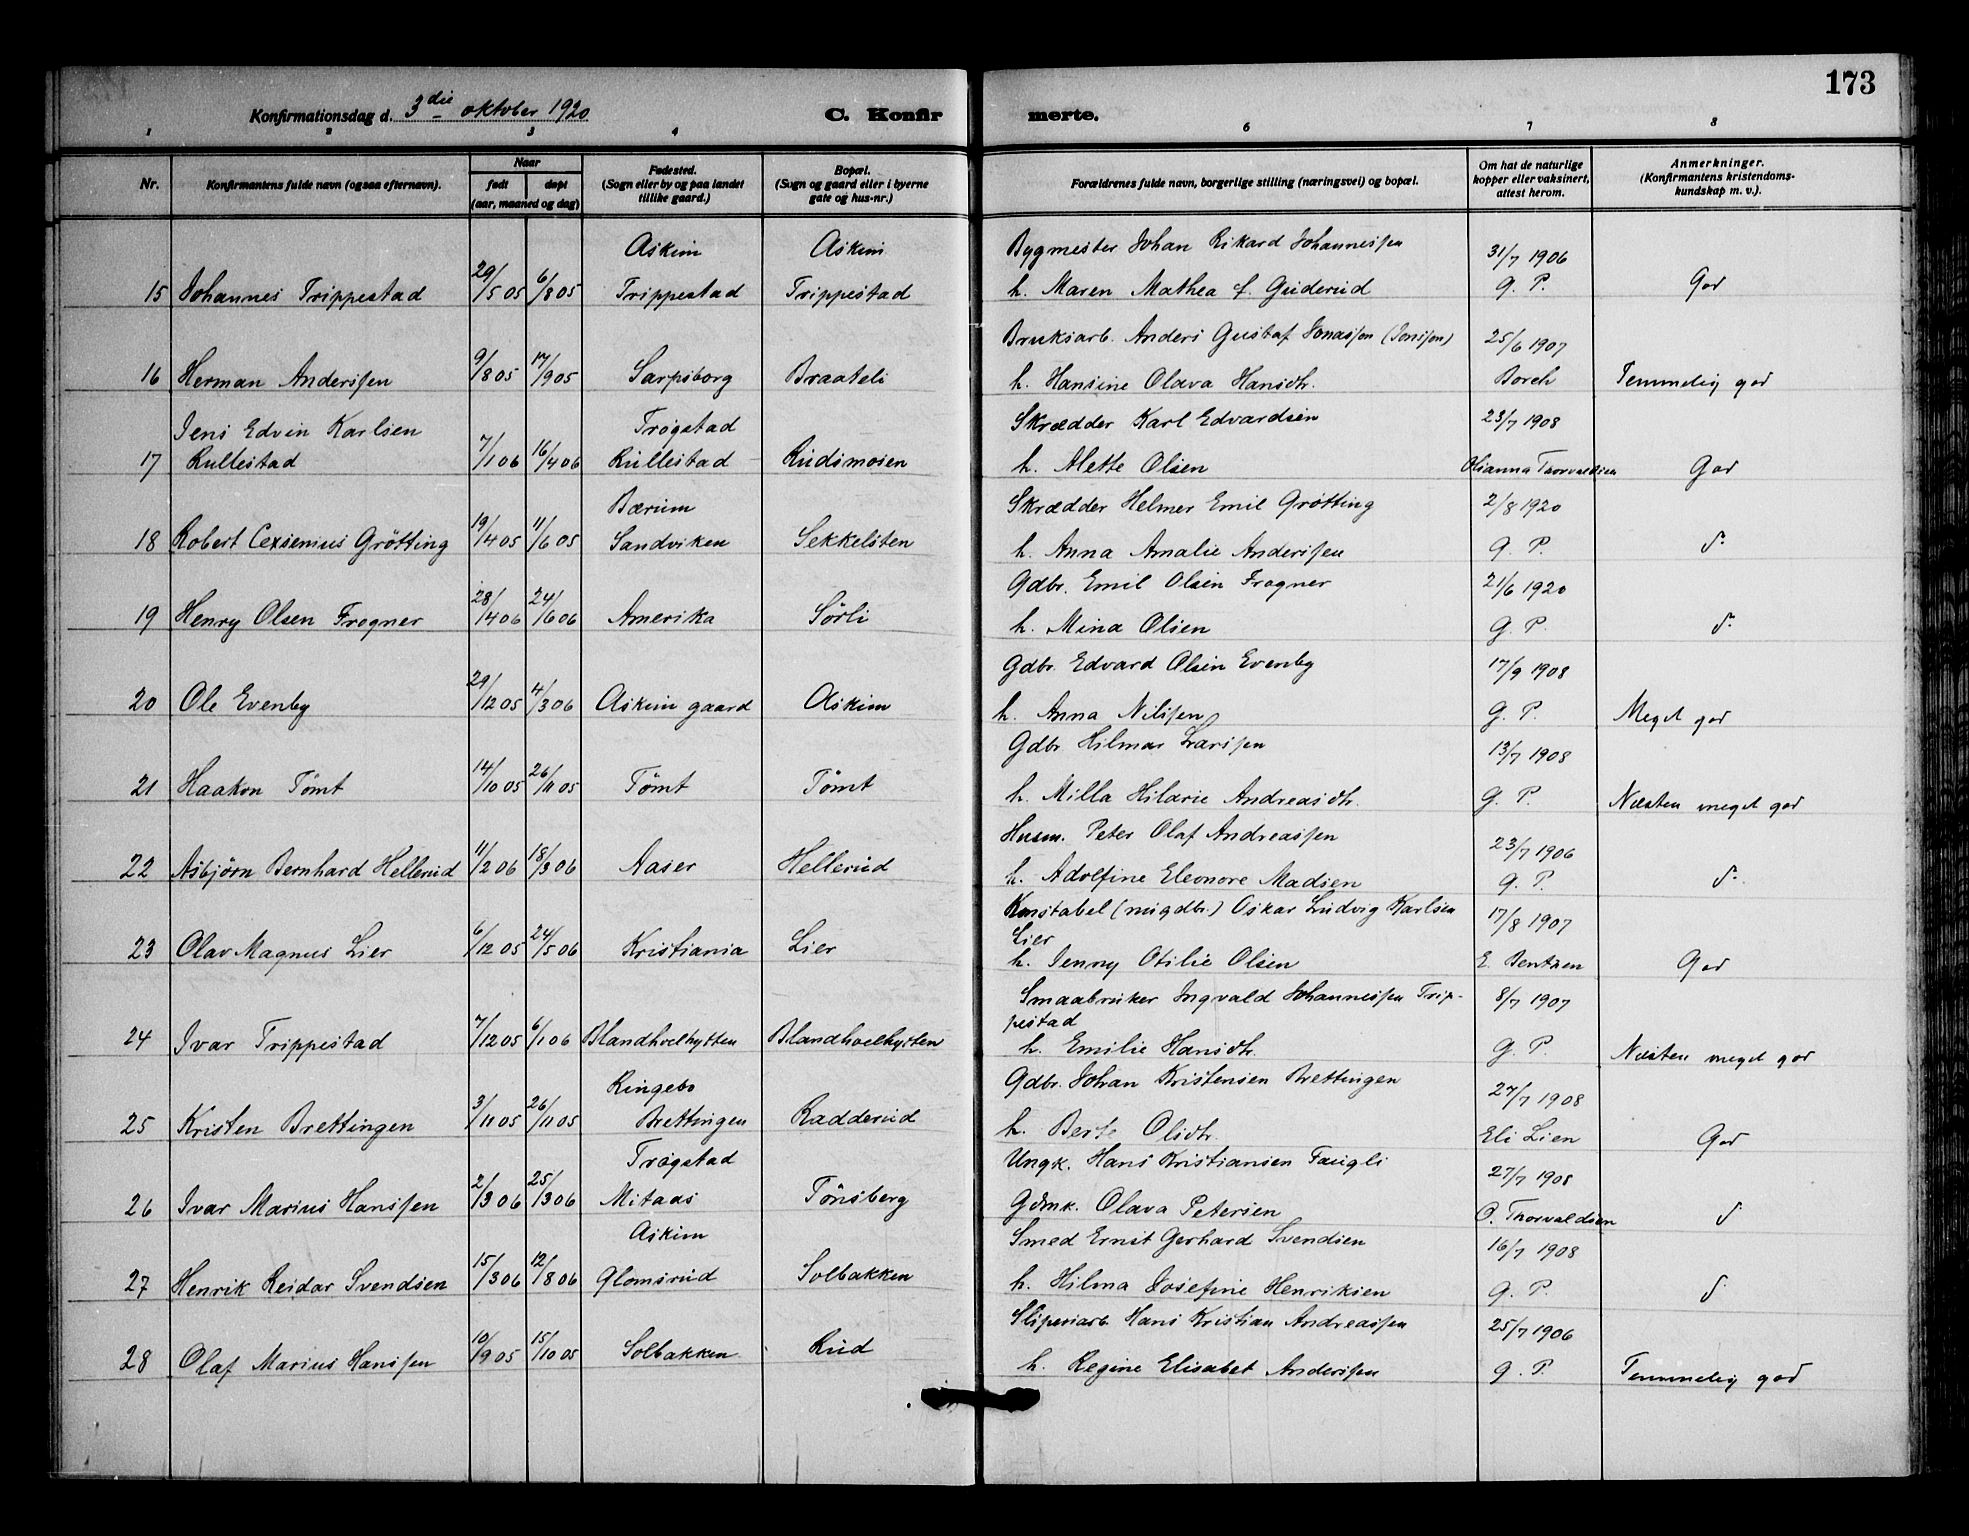 173
Konfirmationsdag d. 3die oktober 1920
C. Konfirmerte.
1 2 3 4 6 7 8
Nr.
Konfirmantens fulde navn (ogsaa efternavn).
Naar
født døpt
(aar, maaned og dag)
Fødested.
(Sogn eller by og paa landet
tillike gaard.)
Bopæl.
(Sogn og gaard eller i byerne
gate og hus-nr.)
Forældrenes fulde navn, borgerlige stilling (næringsvei) og bopæl.
Om hat de naturlige
kopper eller vaksinert,
attest herom.
Anmerkninger.
(Konfirmantens kristendoms-
kundskap m. v.).
Askim Askim Bygmester Johan Rikard Johannessen 31/7 1906
15 Johannes Trippestad 29/5 05 6/8 05 Trippestad Trippestad h. Maren Mathea f. Guderud g. P. God
Bruksarb. Anders Gustaf Jonasson (Jonsson) 25/6 1907
16 Herman Anderssen 9/8 05 17/9 05 Sarpsborg Braateli h. Hansine Olava Hansdtr. Borch Temmelig god
Jens Edvin Karlsen Trøgstad Skrædder Karl Edvardsen 23/7 1908
17 Rullestad 7/1 06 16/4 06 Rullestad Rudsmosen h. Mette Olsen Olianna Thorvaldsen God
Bærum Skrædder Helmer Emil Grøtting 2/8 1920
18 Robert Cexsenius Grøtting 19/4 05 11/6 05 Sandviken Sekkelsten h. Anna Amalie Anderssen g. P. d:
Gdbr. Emil Olsen Frogner 21/6 1920
19 Henry Olsen Frogner 28/4 06 24/6 06 Amerika Sørli h. Mina Olsen g. P. d:
Gdbr. Edvard Olsen Evenby 17/9 1908
20 Ole Evenby 29/12 05 4/3 06 Askim gaard Askim h. Anna Nilssen g. P. Meget god
Gdbr Hilmar Larssen 13/7 1908
21 Haakon Tømt 14/10 05 26/11 05 Tømt Tømt h. Milla Hilarie Andreasdtr. g. P. Næsten meget god
Husm. Peter Olaf Andreassen 23/7 1906
22 Asbjørn Bernhard Hellerud 11/2 06 18/3 06 Aaser Hellerud h. Adolfine Eleonore Madsen g. P. d:
Konstabel (nu gdbr.) Oskar Ludvig Karlsen 17/8 1907
Lier
23 Olav Magnus Lier 6/12 05 24/5 06 Kristiania Lier h. Jenny Otilie Olsen E. Bentzen God
Smaabruker Ingvald Johannessen Trip- 8/7 1907
pestad
24 Ivar Trippestad 7/12 05 6/1 06 Blandhoelhytten Blandhoelhytten h. Emilie Hansdtr. g. P. Næsten meget god
Ringebo Gdbr. Johan Kristensen Brettingen 27/7 1908
25 Kristen Brettingen 3/11 05 26/11 05 Brettingen Radderud h. Berte Olsdtr. Eli Lien God
Trøgstad Ungk. Hans Kristiansen Faugli 27/7 1908
26 Ivar Marius Hanssen 2/3 06 25/3 06 Mitaas Tønsberg Gdmk. Olava Petersen O. Thorvaldsen d
Askim Smed Ernst Gerhard Svendsen 16/7 1908
27 Henrik Reidar Svendsen 15/3 06 12/8 06 Glomsrud Solbakken h. Hilma Josefine Henriksen g. P. d
Sliperiarb Hans Kristian Andreassen 25/7 1906
28 Olaf Marius Hanssen 10/9 05 15/10 05 Solbakken Rud h. Regine Elisabet Anderssen g. P. Temmelig god